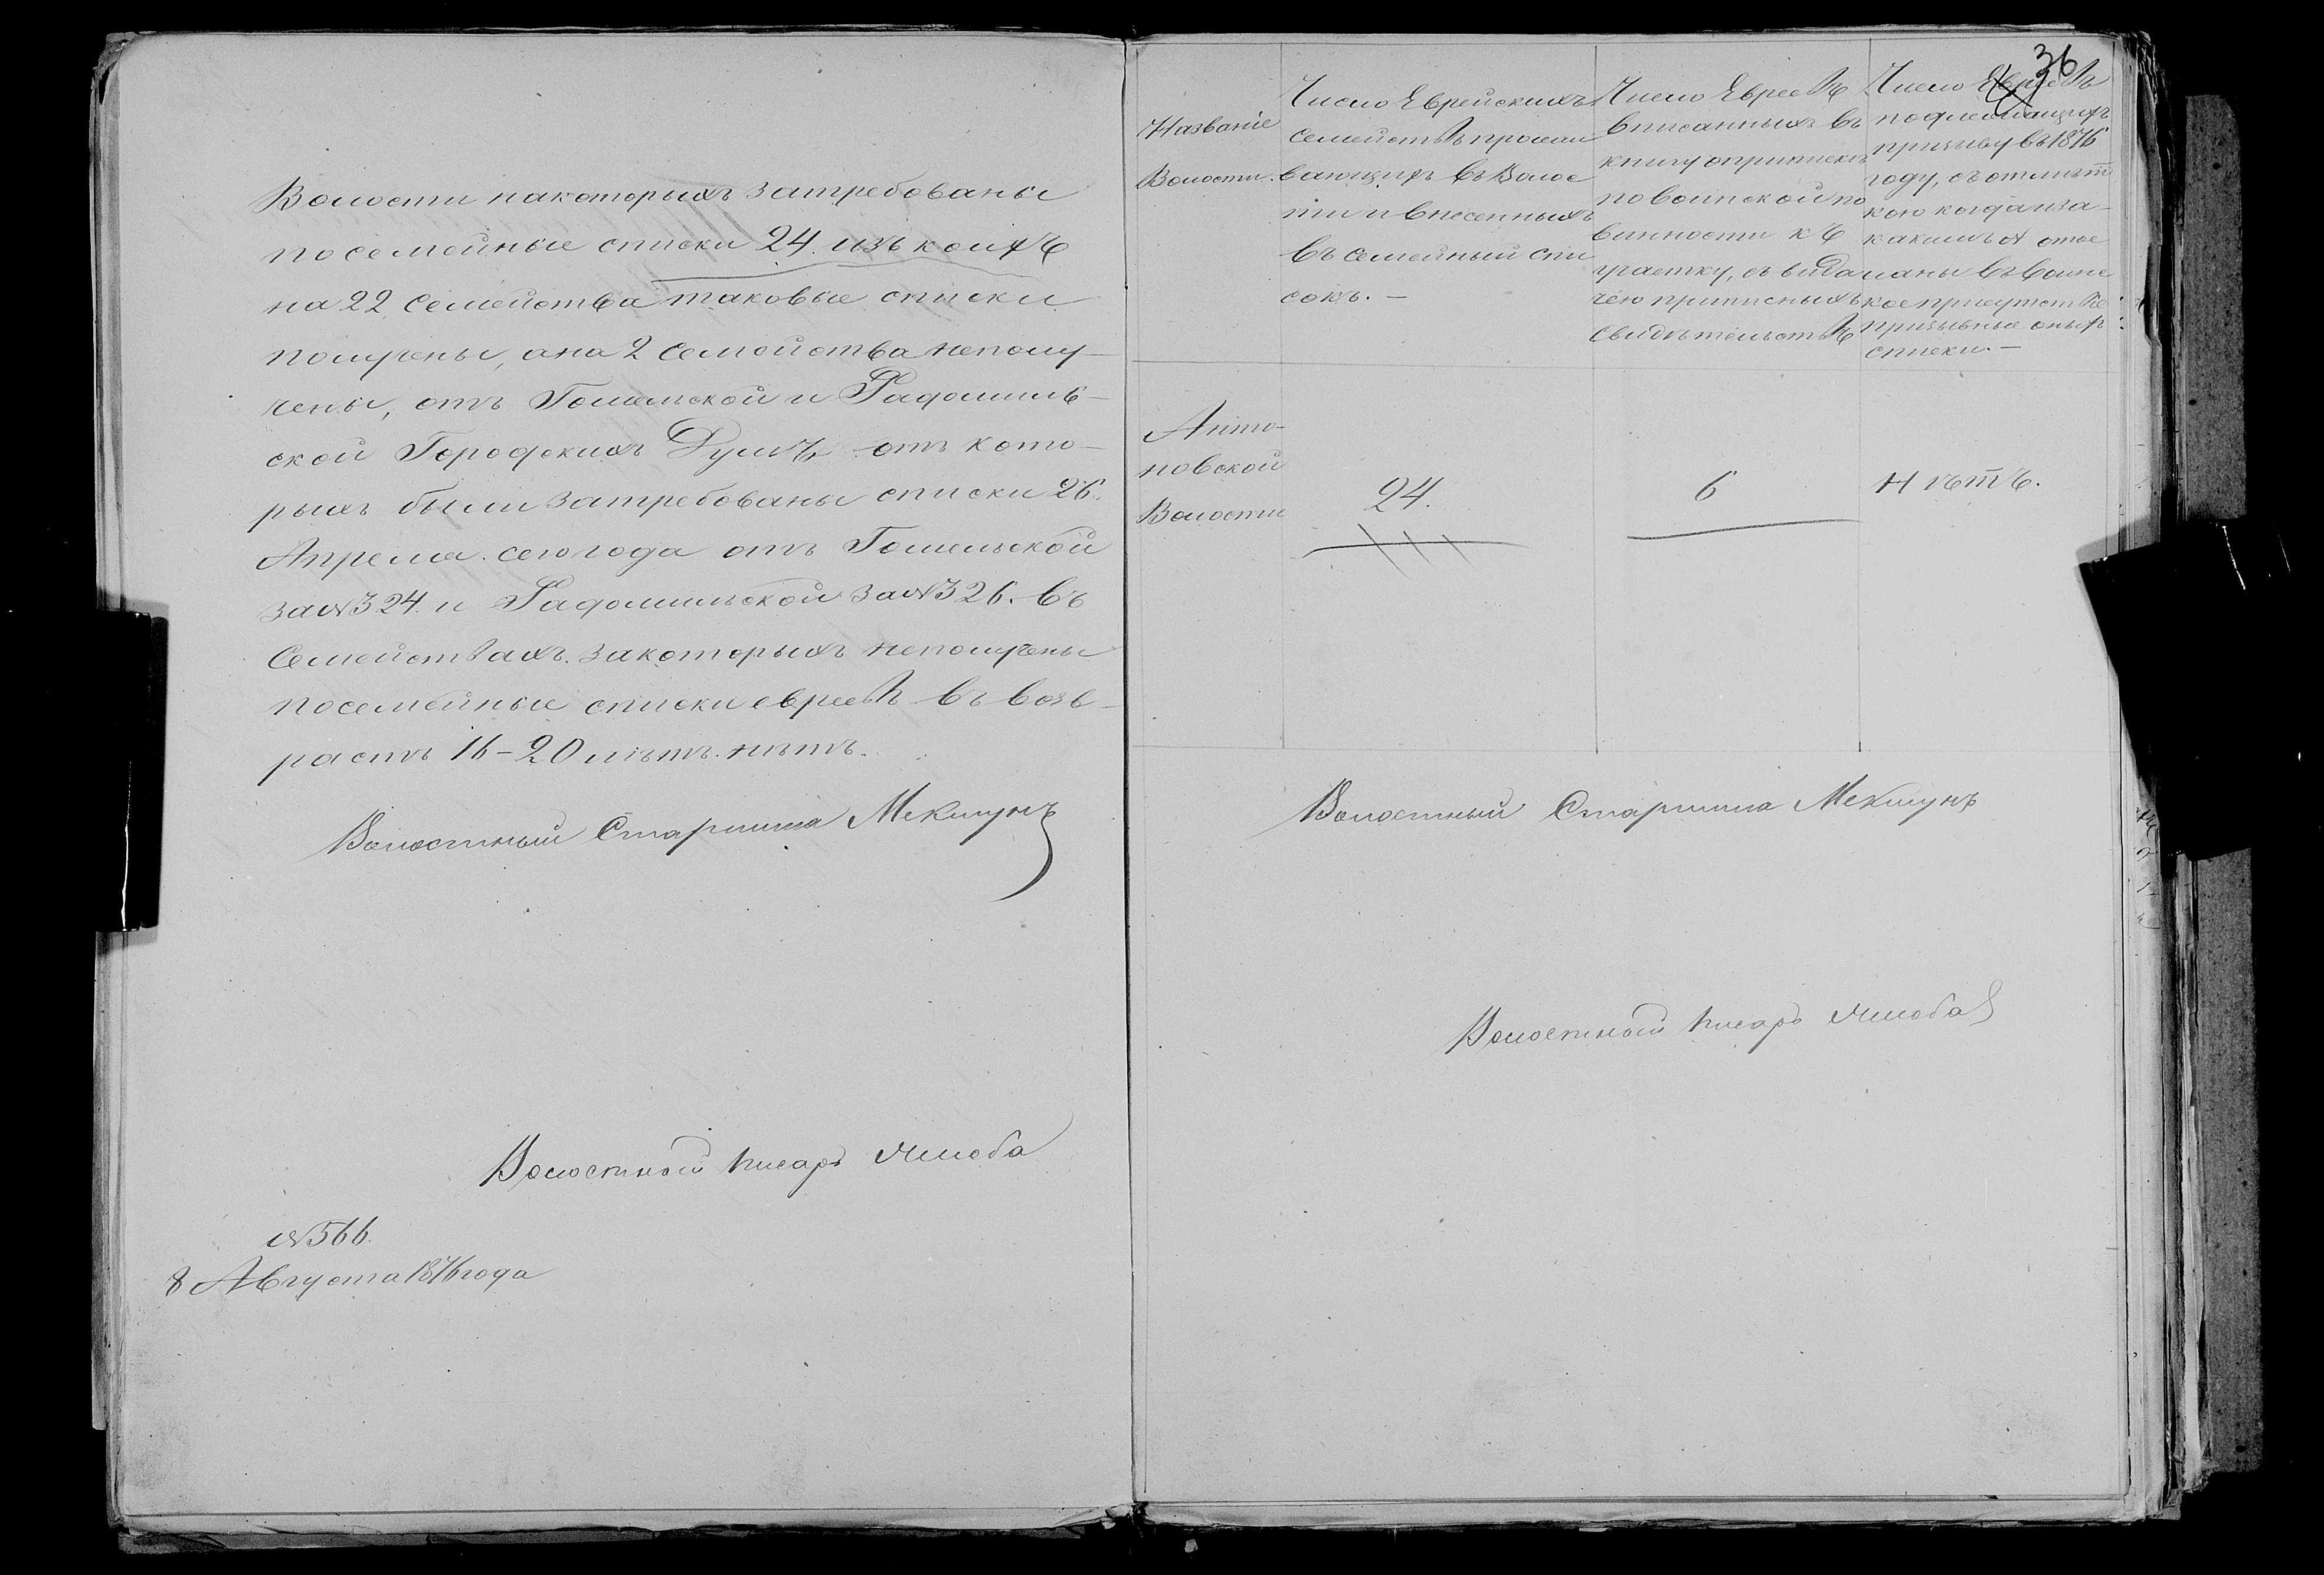 Волости накоторыхъ затребованы
посемейные списки 24. изъ коихъ
на 22 семейства таковые списки
получены, а на 2 семейства неполу-
чены, отъ Гомельской и Радомыль-
ской Городскихъ Думъ отъ кото-
рыхъ были затребованы списки 26.
Апреля. сего года отъ Гомельской
за №324. и Радомыльской за №326. въ
Семействахъ. закоторыхъ неполучены
посемейные списки евреевъ въ возв-
растъ 16-20 лѣтъ. нѣтъ.
Волостный Старшина Мекшунъ
Волостной писарь
№566.
8 Августа 1876 года
36
Названіе
Волости.
Число Еврейскихъ
семействъ прожи
вающихъ въ Волос
ти и внесенныхъ
въ семейный спи
сокъ. —
Число Евреевъ
вписанныхъ въ
книгу оприпискѣ
по воинской по
винности къ
участку, съ выда
чею приписныхъ
свидѣтельствъ
Число Евреевъ
подлежащихъ
призыву въ 1876
году, съ отмѣт
кою когда и за
какимъ № отос
ланы въ воинс
кое присутствіе
призывные оныхъ
списки. —
Анто-
новской
Волости
24.
6
Нѣтъ.
Волостный Старшина Мекшунъ
Волостной писарь